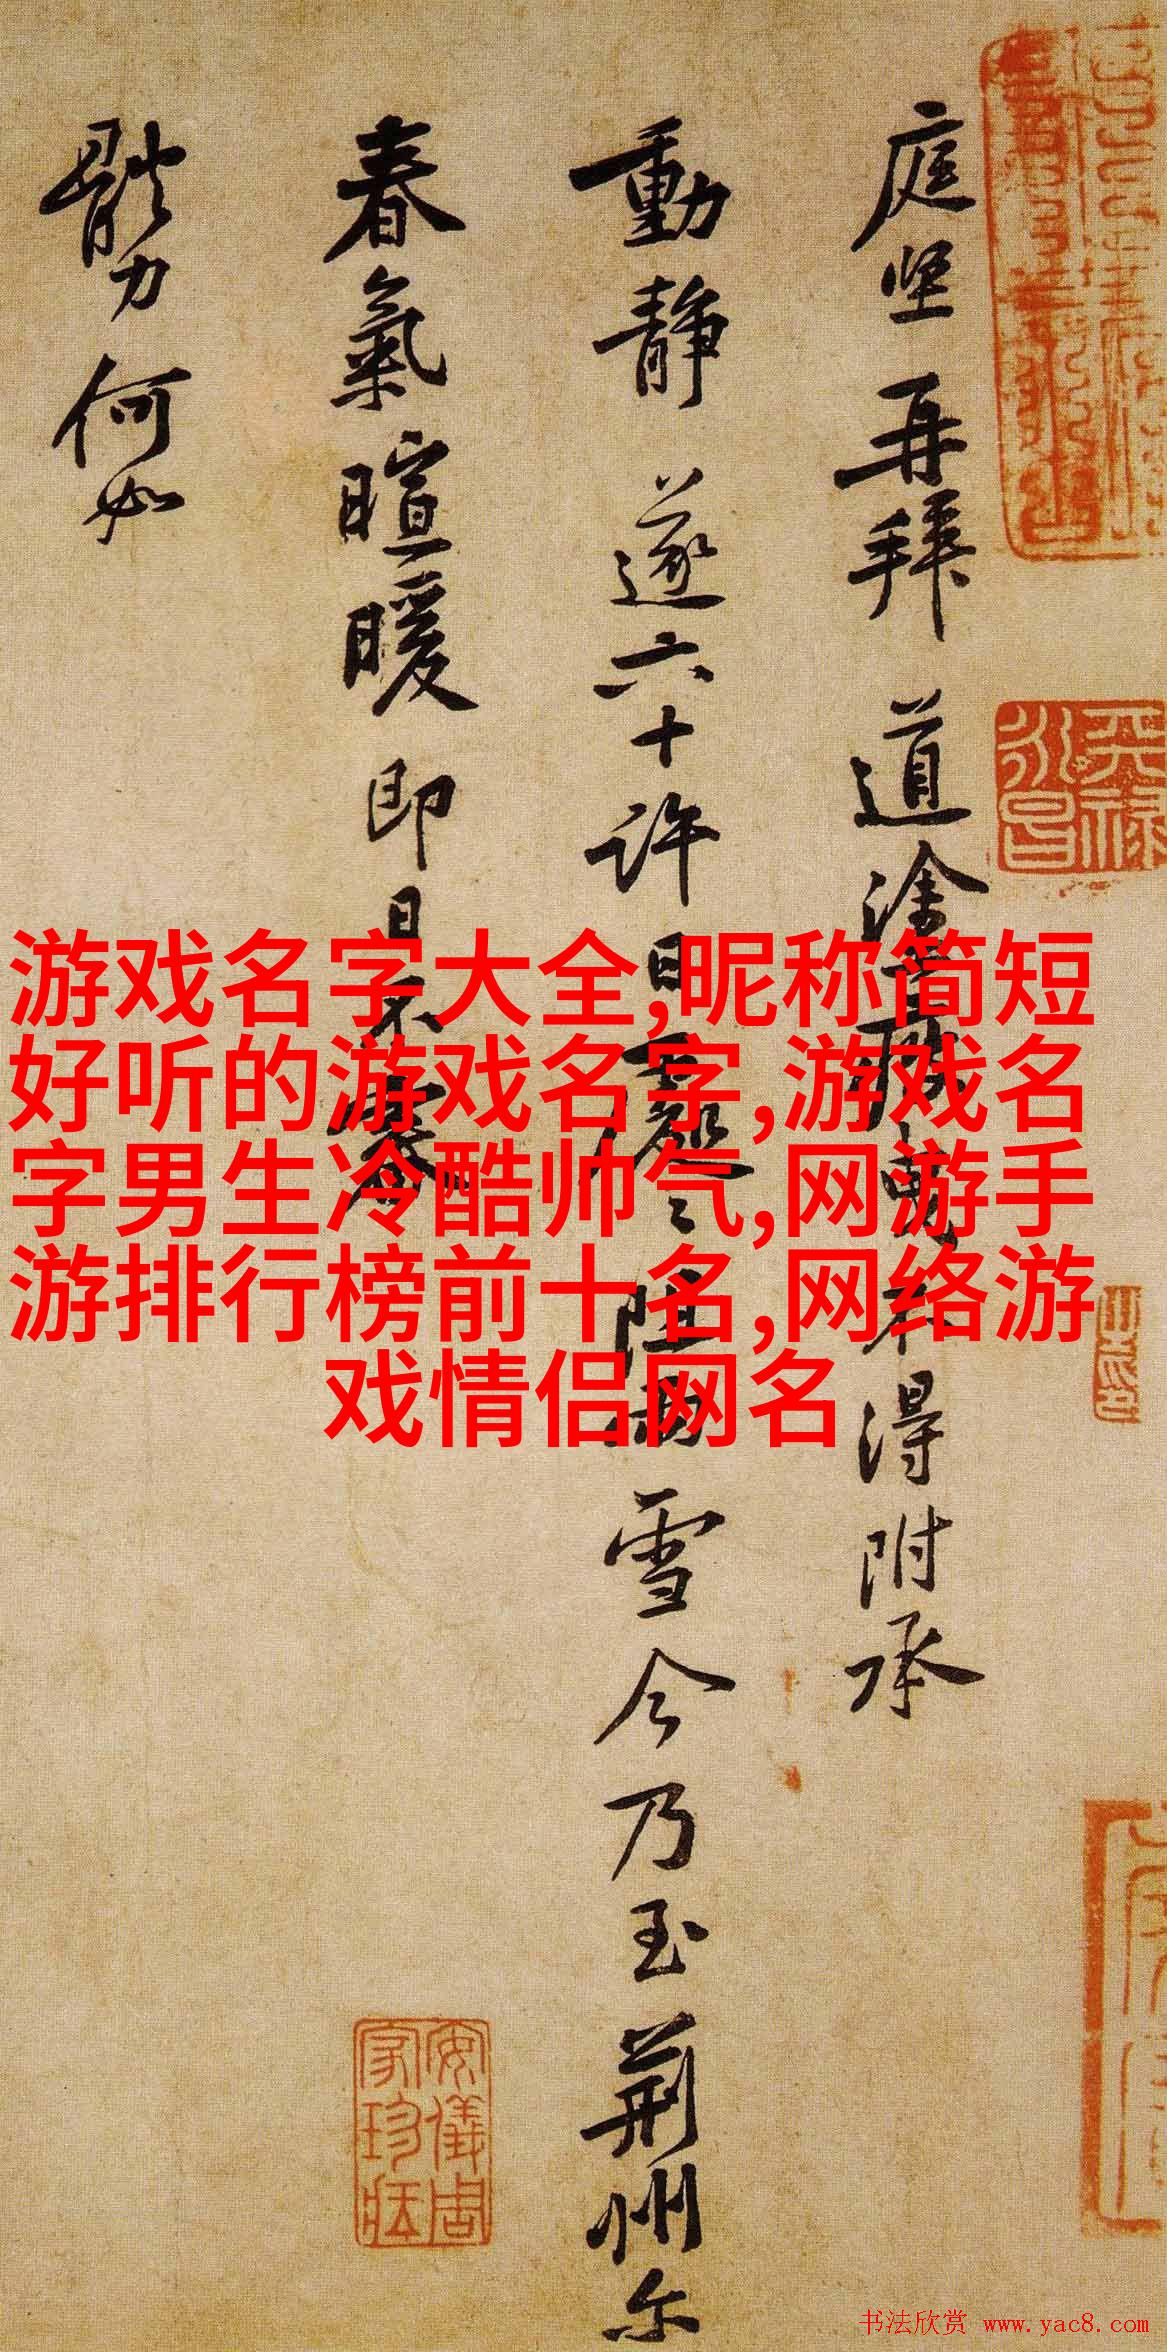 庭坚再拜道涂
不得附承
動静遂六十许日
阻雨雪今乃至荆州尔
春氣暄暖即日不審
體力何如
游戏名字大全,昵称简短
好听的游戏名字,游戏名
字男生冷酷帅气,网游手
游排行榜前十名,网络游
戏情侣网名
天禄
永昌
安儀周
家珍藏
书法欣赏 www.yac8.com